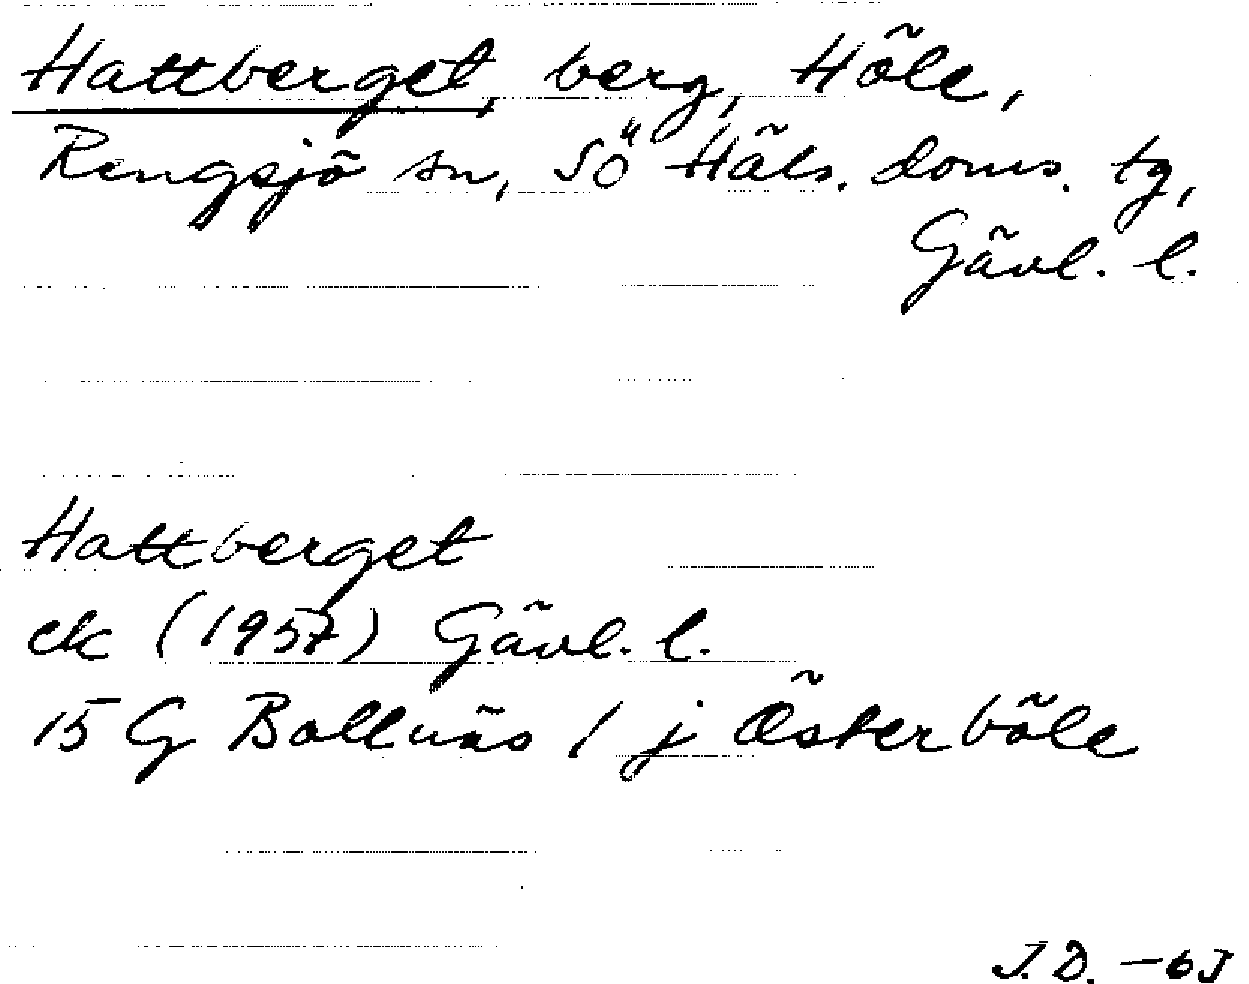 Hattberget, berg, Höle,
Rengsjö sn, Sö Häls. doms. tg,
Gävl. l.
Hattberget
ek (1957) Gävl. l.
15 G Bollnäs 1 j Österböle
J.D. -65